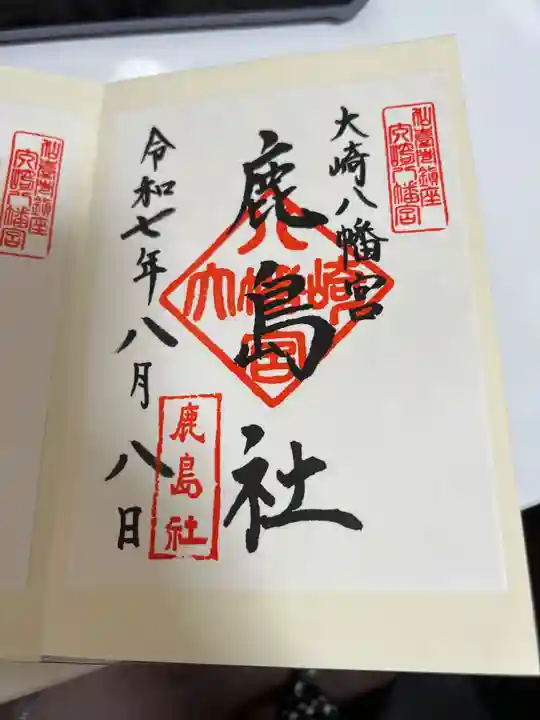 仙臺市鎮座
大崎八幡宮
大崎八幡宮
鹿島社
八幡
大崎
宮
鹿島社
令和七年八月八日
仙臺市鎮座
大崎八幡宮